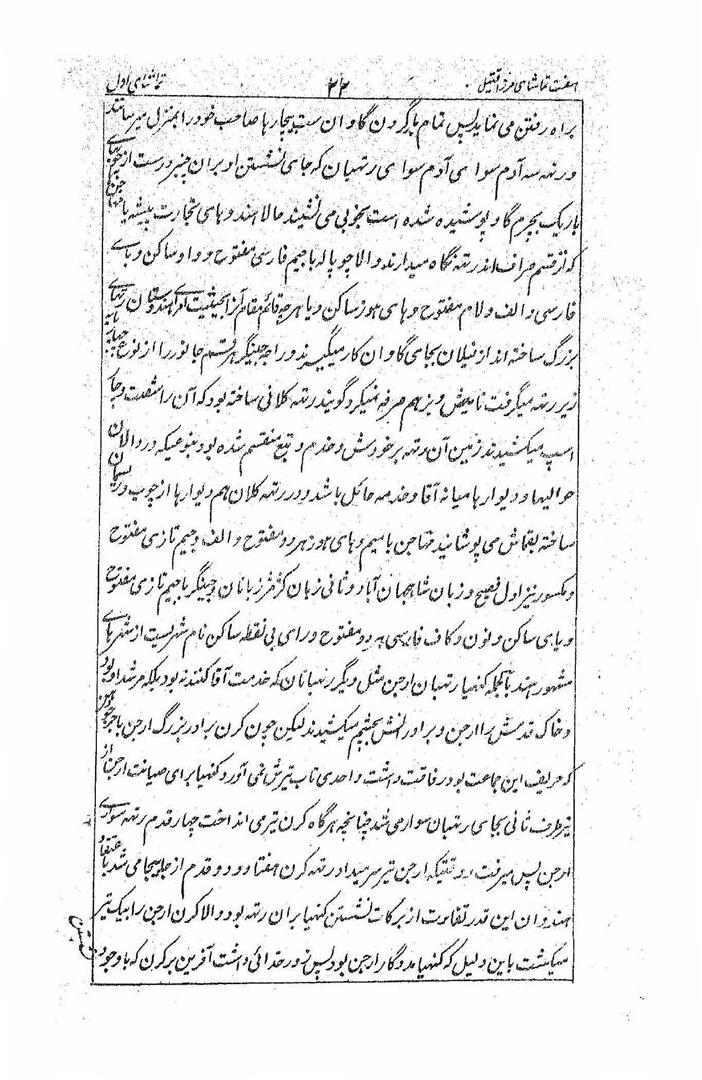 هفت تماشای مرزا قتیل ۲۲ تماشای اول
براه رفتن می نماید پس تمام با گردن گاوان ست بیچارها صاحب خود را بمنزل میرسانند
و رتهه سه آدم سوای آدم سوای رتهبان که جای نشستن او بران چنبر درست از چوبهای
باریک بچرم گاو پوشیده شده است بخوبی می نشیند مالا هندوهای تجارت پیشه یا
که از قسم صراف اند رتهه نگاه میدارند والا چوپاله با جیم فارسی مفتوح و واو ساکن و بای
فارسی و الف و لام مفتوح و های هوز ساکن و یا هر چه قائم مقام آنرا بحیثیت امرای هندوستان رتهه‌های
بزرگ ساخته اند از فیلان بجای گاوان کار میگیرند و راجه جینگر هر قسم جانور را از نوع چهارپایه
زیر رتهه میگرفت تا میش و بز هم صرفه نمیکرد گویند رتهه کلانی ساخته بود که آن را شصت و چار
اسپ میکشیدند زمین آن رتهه بر خودش و خدم و تبع منقسم شده بود بنوعیکه در دالان
حوالیها و دیوارها میانه آقا و خدمه حائل باشد و در رتهه کلان هم دیوارها از چوب و ریسمان
ساخته بقماش می پوشانید مهاجن با میم و های هوز هر دو مفتوح و الف و جیم تازی مفتوح
و مکسور نیز اول فصیح و زبان شاهجهان آباد و ثانی زبان کژمژ زبانان و جینگر با جیم تازی مفتوح
و یای ساکن و نون و کاف فارسی هر دو مفتوح و رای بی نقطه ساکن نام شهریست از شهرهای
مشهور هند بالجمله کنهیا رتهبان ارجن مثل دیگر رتهبانان که خدمت آقا کنند نه بود بلکه مرشد او بود
و خاک قدمش را ارجن و برادرانش بچشم میکشیدند لیکن چون کرن برادر بزرگ ارجن با جرجودهن
که حریف این جماعت بود رفاقت داشت و احدی تاب تیرش نمی آورد کنهیا برای صیانت ارجن از
تیر طرف ثانی بجای رتهبان سوار می شد چنانچه هرگاه کرن تیر می انداخت چهار قدم رتهه سواری
ارجن پس میرفت و وقتیکه ارجن تیر سر میداد رتهه کرن هفتاد و دو قدم از جا بیجا می شد باعتقاد
هندوان این قدر تفاوت از برکات نشستن کنهیا بران رتهه بود والا کرن ارجن را بیک تیر
میکشت باین دلیل که کنهیا مددگار ارجن بود پس زور خدائی داشت آفرین بر کرن که با وجود
نشستن